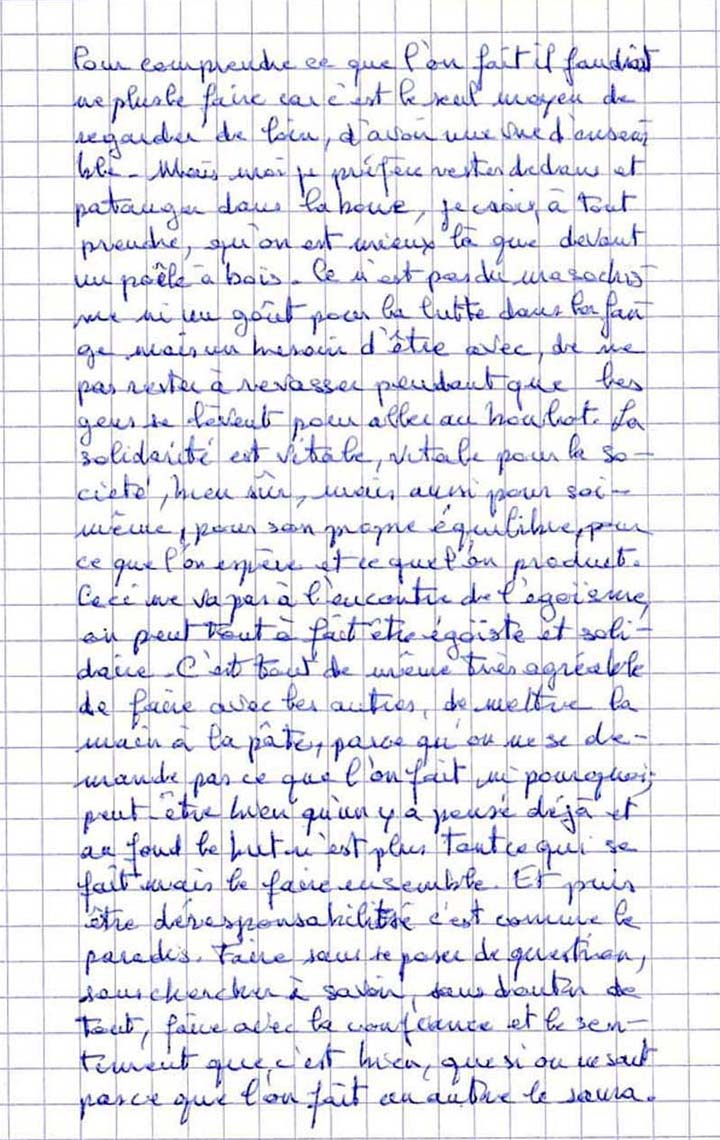 Pour comprendre ce que l'on fait il faudrait
ne plus le faire car c'est le seul moyen de
regarder de loin, d'avoir une vue d'ensem
ble. Mais moi je préfère rester dedans et
patauger dans la boue, je crois, à tout
prendre, qu'on est mieux là que devant
un poêle à bois. Ce n'est pas du masochis
me ni un goût pour la lutte dans la fan
ge mais un besoin d'être avec, de ne
pas rester à rêvasser pendant que les
gens se lèvent pour aller au boulot. La
solidarité est vitale, vitale pour la so-
ciété, bien sûr, mais aussi pour soi-
même, pour son propre équilibre, pour
ce que l'on espère et ce que l'on produit.
Ceci ne va pas à l'encontre de l'égoïsme,
on peut tout à fait être égoïste et soli-
daire. C'est tout de même très agréable
de faire avec les autres, de mettre la
main à la pâte, parce qu'on ne se de-
mande pas ce que l'on fait, ni pourquoi,
peut-être bien qu'un y a pensé déjà et
au fond le but n'est plus tant ce qui se
fait mais le faire ensemble. Et puis
être déresponsabilisé c'est comme le
paradis. Faire sans se poser de question,
sans chercher à savoir, sans douter de
tout, faire avec la confiance et le sen-
timent que c'est bien, que si on ne sait
pas ce que l'on fait un autre le saura.